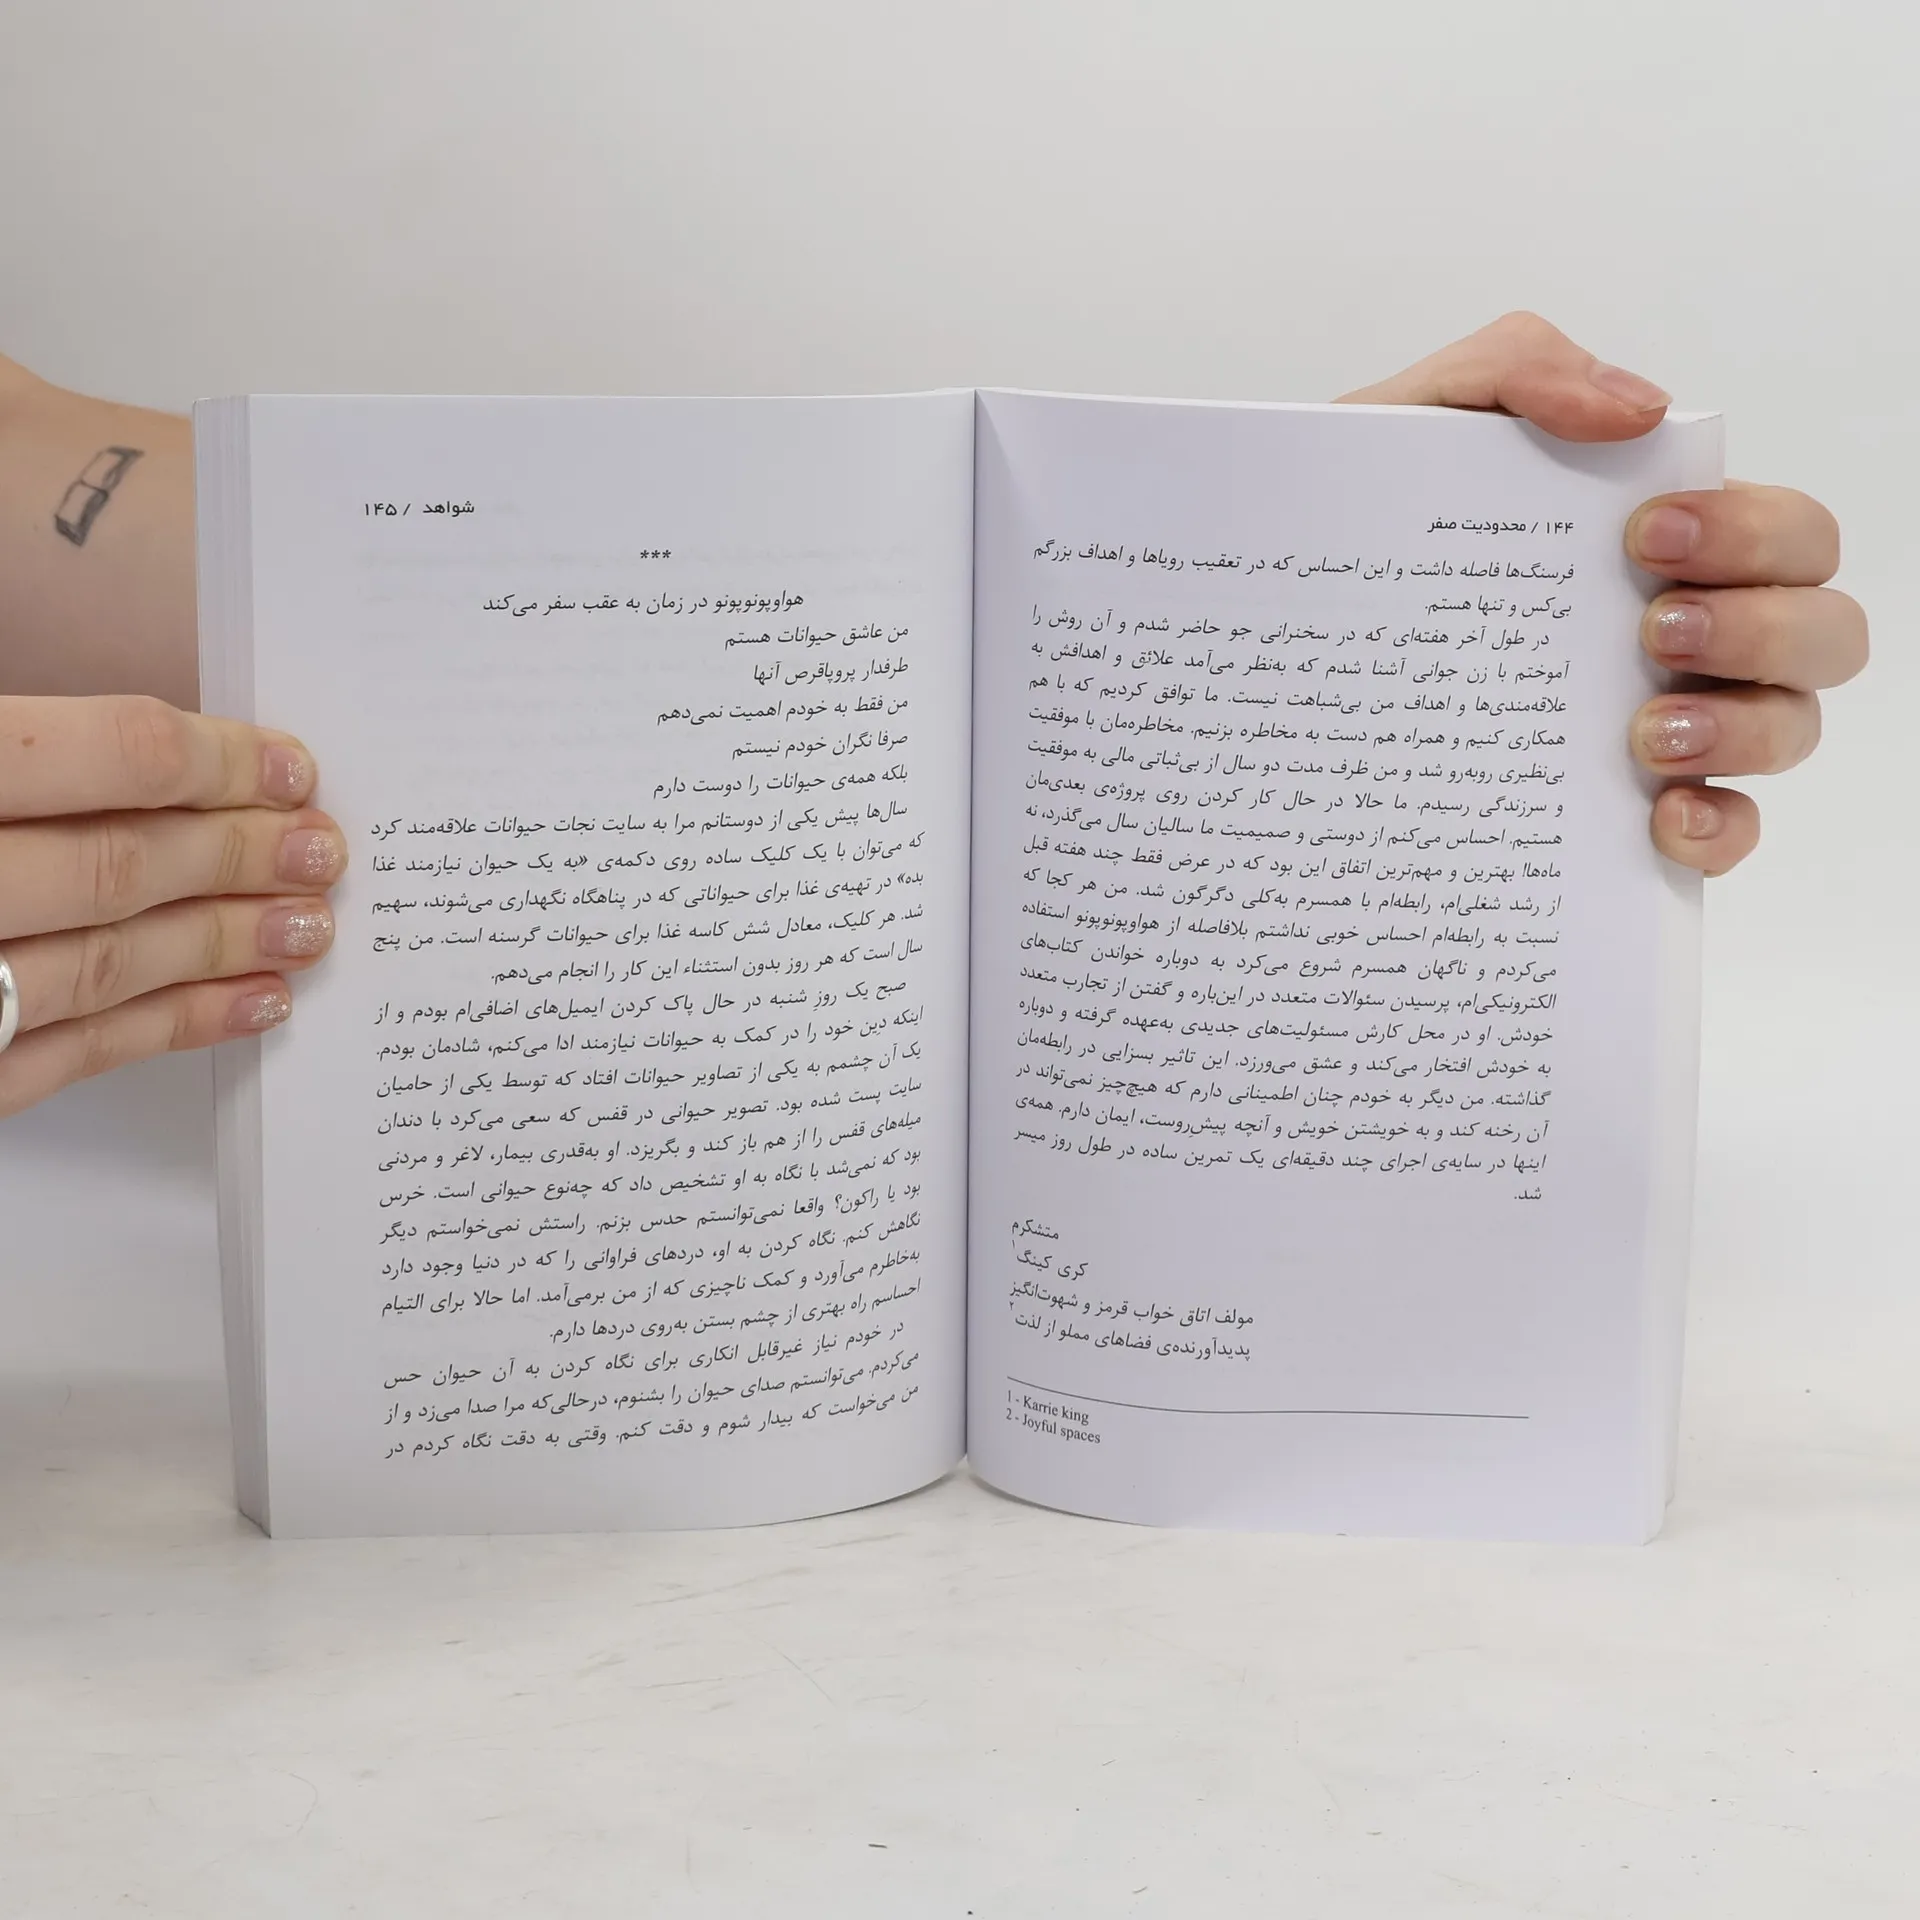 ۱۴۴ / محدودیت صفر
فرسنگ‌ها فاصله داشت و این احساس که در تعقیب رویاها و اهداف بزرگم
بی‌کس و تنها هستم.
در طول آخر هفته‌ای که در سخنرانی جو حاضر شدم و آن روش را
آموختم با زن جوانی آشنا شدم که به‌نظر می‌آمد علائق و اهدافش به
علاقه‌مندی‌ها و اهداف من بی‌شباهت نیست. ما توافق کردیم که با هم
همکاری کنیم و همراه هم دست به مخاطره بزنیم. مخاطره‌مان با موفقیت
بی‌نظیری روبه‌رو شد و من ظرف مدت دو سال از بی‌ثباتی مالی به موفقیت
و سرزندگی رسیدم. ما حالا در حال کار کردن روی پروژه‌ی بعدی‌مان
هستیم. احساس می‌کنم از دوستی و صمیمیت ما سالیان سال می‌گذرد، نه
ماه‌ها! بهترین و مهم‌ترین اتفاق این بود که در عرض فقط چند هفته قبل
از رشد شغلی‌ام، رابطه‌ام با همسرم به‌کلی دگرگون شد. من هر کجا که
نسبت به رابطه‌ام احساس خوبی نداشتم بلافاصله از هواوپونوپونو استفاده
می‌کردم و ناگهان همسرم شروع می‌کرد به دوباره خواندن کتاب‌های
الکترونیکی‌ام، پرسیدن سئوالات متعدد در این‌باره و گفتن از تجارب متعدد
خودش. او در محل کارش مسئولیت‌های جدیدی به‌عهده گرفته و دوباره
به خودش افتخار می‌کند و عشق می‌ورزد. این تاثیر بسزایی در رابطه‌مان
گذاشته. من دیگر به خودم چنان اطمینانی دارم که هیچ‌چیز نمی‌تواند در
آن رخنه کند و به خویشتن خویش و آنچه پیش‌ِروست، ایمان دارم. همه‌ی
اینها در سایه‌ی اجرای چند دقیقه‌ای یک تمرین ساده در طول روز میسر
شد.
متشکرم
کری کینگ۱
مولف اتاق خواب قرمز و شهوت‌انگیز
پدیدآورنده‌ی فضاهای مملو از لذت۲
1 - Karrie king
2 - Joyful spaces
شواهد / ۱۴۵
***
هواوپونوپونو در زمان به عقب سفر می‌کند
من عاشق حیوانات هستم
طرفدار پروپاقرص آنها
من فقط به خودم اهمیت نمی‌دهم
صرفا نگران خودم نیستم
بلکه همه‌ی حیوانات را دوست دارم
سال‌ها پیش یکی از دوستانم مرا به سایت نجات حیوانات علاقه‌مند کرد
که می‌توان با یک کلیک ساده روی دکمه‌ی «به یک حیوان نیازمند غذا
بده» در تهیه‌ی غذا برای حیواناتی که در پناهگاه نگهداری می‌شوند، سهیم
شد. هر کلیک، معادل شش کاسه غذا برای حیوانات گرسنه است. من پنج
سال است که هر روز بدون استثناء این کار را انجام می‌دهم.
صبح یک روزِ شنبه در حال پاک کردن ایمیل‌های اضافی‌ام بودم و از
اینکه دِین خود را در کمک به حیوانات نیازمند ادا می‌کنم، شادمان بودم.
یک آن چشمم به یکی از تصاویر حیوانات افتاد که توسط یکی از حامیان
سایت پست شده بود. تصویر حیوانی در قفس که سعی می‌کرد با دندان
میله‌های قفس را از هم باز کند و بگریزد. او به‌قدری بیمار، لاغر و مردنی
بود که نمی‌شد با نگاه به او تشخیص داد که چه‌نوع حیوانی است. خرس
بود یا راکون؟ واقعا نمی‌توانستم حدس بزنم. راستش نمی‌خواستم دیگر
نگاهش کنم. نگاه کردن به او، دردهای فراوانی را که در دنیا وجود دارد
به‌خاطرم می‌آورد و کمک ناچیزی که از من برمی‌آمد. اما حالا برای التیام
احساسم راه بهتری از چشم بستن به‌روی دردها دارم.
در خودم نیاز غیرقابل انکاری برای نگاه کردن به آن حیوان حس
می‌کردم. می‌توانستم صدای حیوان را بشنوم، درحالی‌که مرا صدا می‌زد و از
من می‌خواست که بیدار شوم و دقت کنم. وقتی به دقت نگاه کردم در